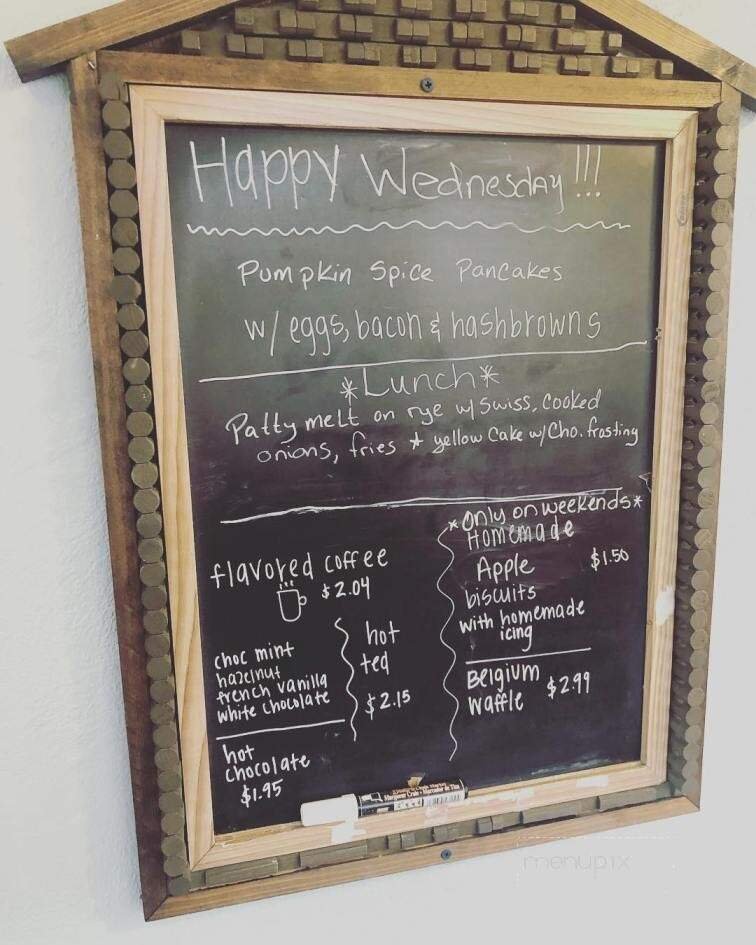 Happy Wednesday!!!
Pumpkin Spice Pancakes
w/ eggs, bacon & hashbrowns
*Lunch*
Patty melt on rye w/ Swiss, cooked
onions, fries * yellow cake w/ Cho. frosting
flavored coffee
$2.04
choc mint
hazelnut
french vanilla
white chocolate
hot
chocolate
$1.95
hot
tea
$2.15
*only on weekends*
Homemade
Apple $1.50
biscuits
with homemade
icing
Belgium
waffle $2.99
menupix